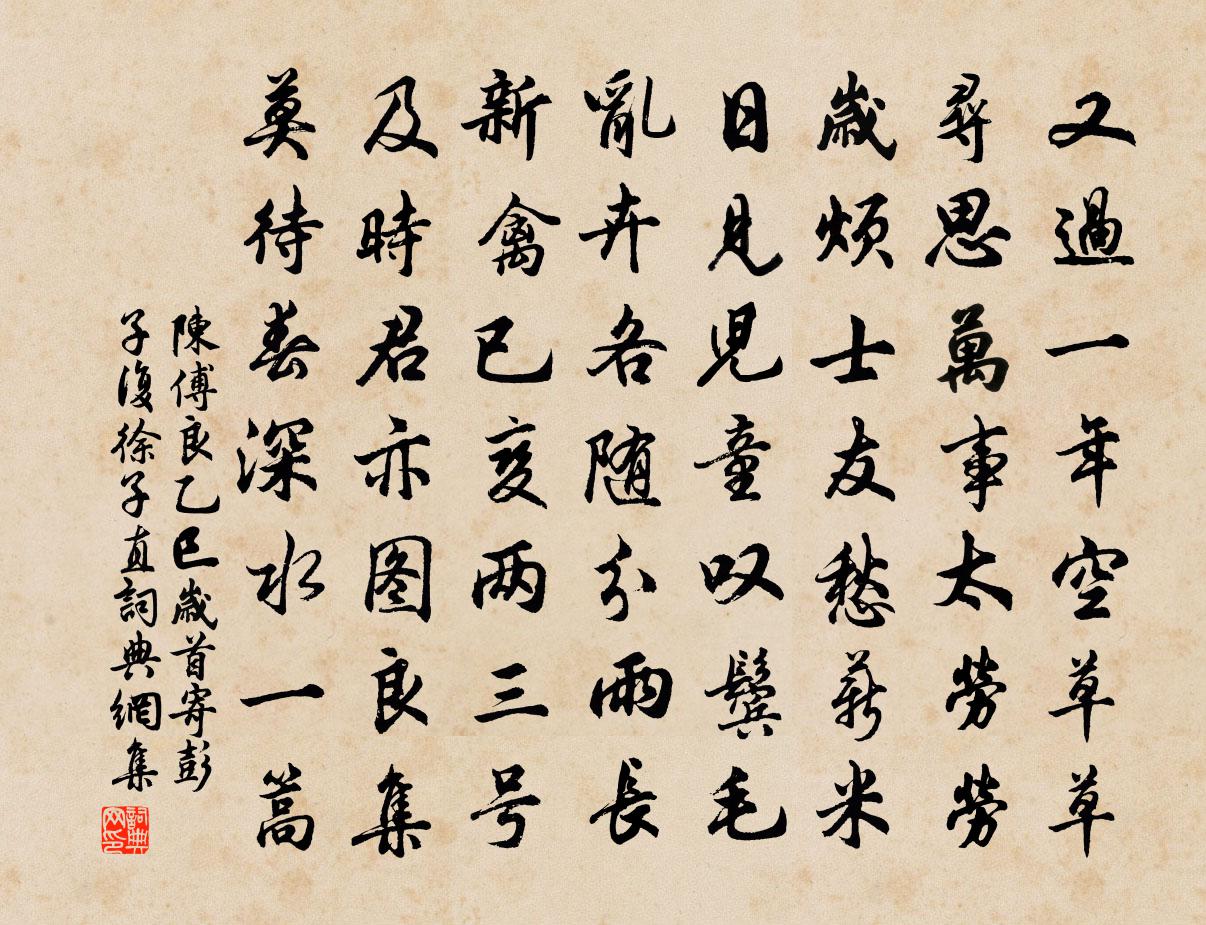 又過一年空草草
尋思萬事太勞勞
歲煩士友愁薪米
日見児童叹鬓毛
亂卉各随分雨長
新禽已变两三号
及時君亦图良集
莫待春深水一篙
陳傅良乙巳歲首寄彭
子復徐子直詞典網集
詞典网印